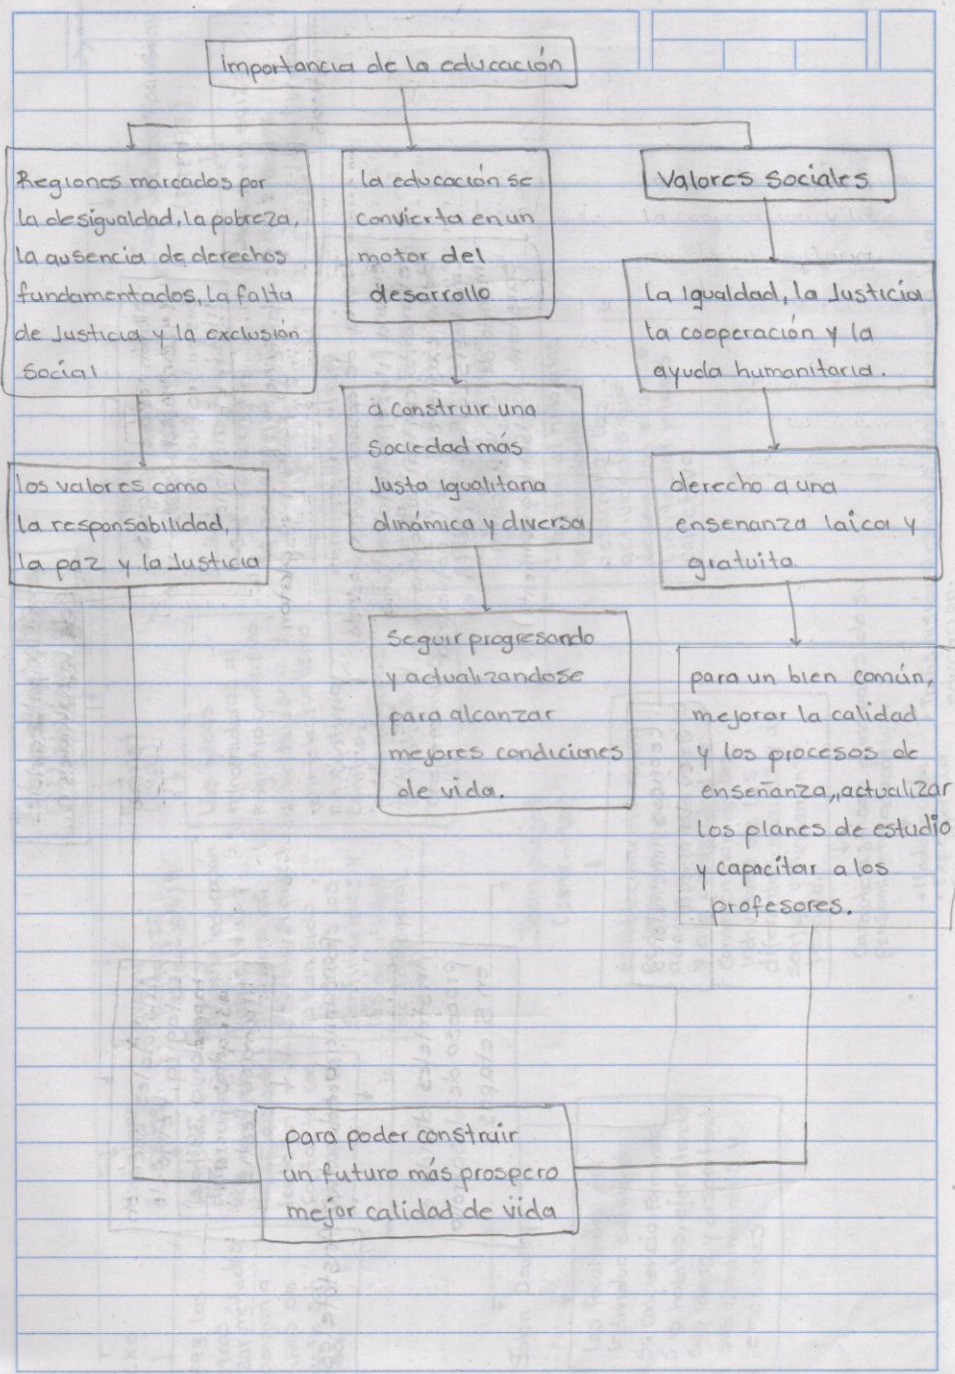 Importancia de la educación
Regiones marcados por
la desigualdad, la pobreza,
la ausencia de derechos
fundamentados, la falta
de Justicia y la exclusión
Social
los valores como
la responsabilidad,
la paz y la Justicia
la educación se
convierta en un
motor del
desarrollo
a construir una
Sociedad más
Justa igualitaria
dinámica y diversa
Seguir progresando
y actualizandose
para alcanzar
mejores condiciones
de vida.
Valores Sociales
la igualdad, la Justicia
la cooperación y la
ayuda humanitaria.
derecho a una
ensenanza laica y
gratuita.
para un bien común,
mejorar la calidad
y los procesos de
enseñanza,, actualizar
los planes de estudio
y capacitar a los
profesores.
para poder construir
un futuro más prospero
mejor calidad de vida